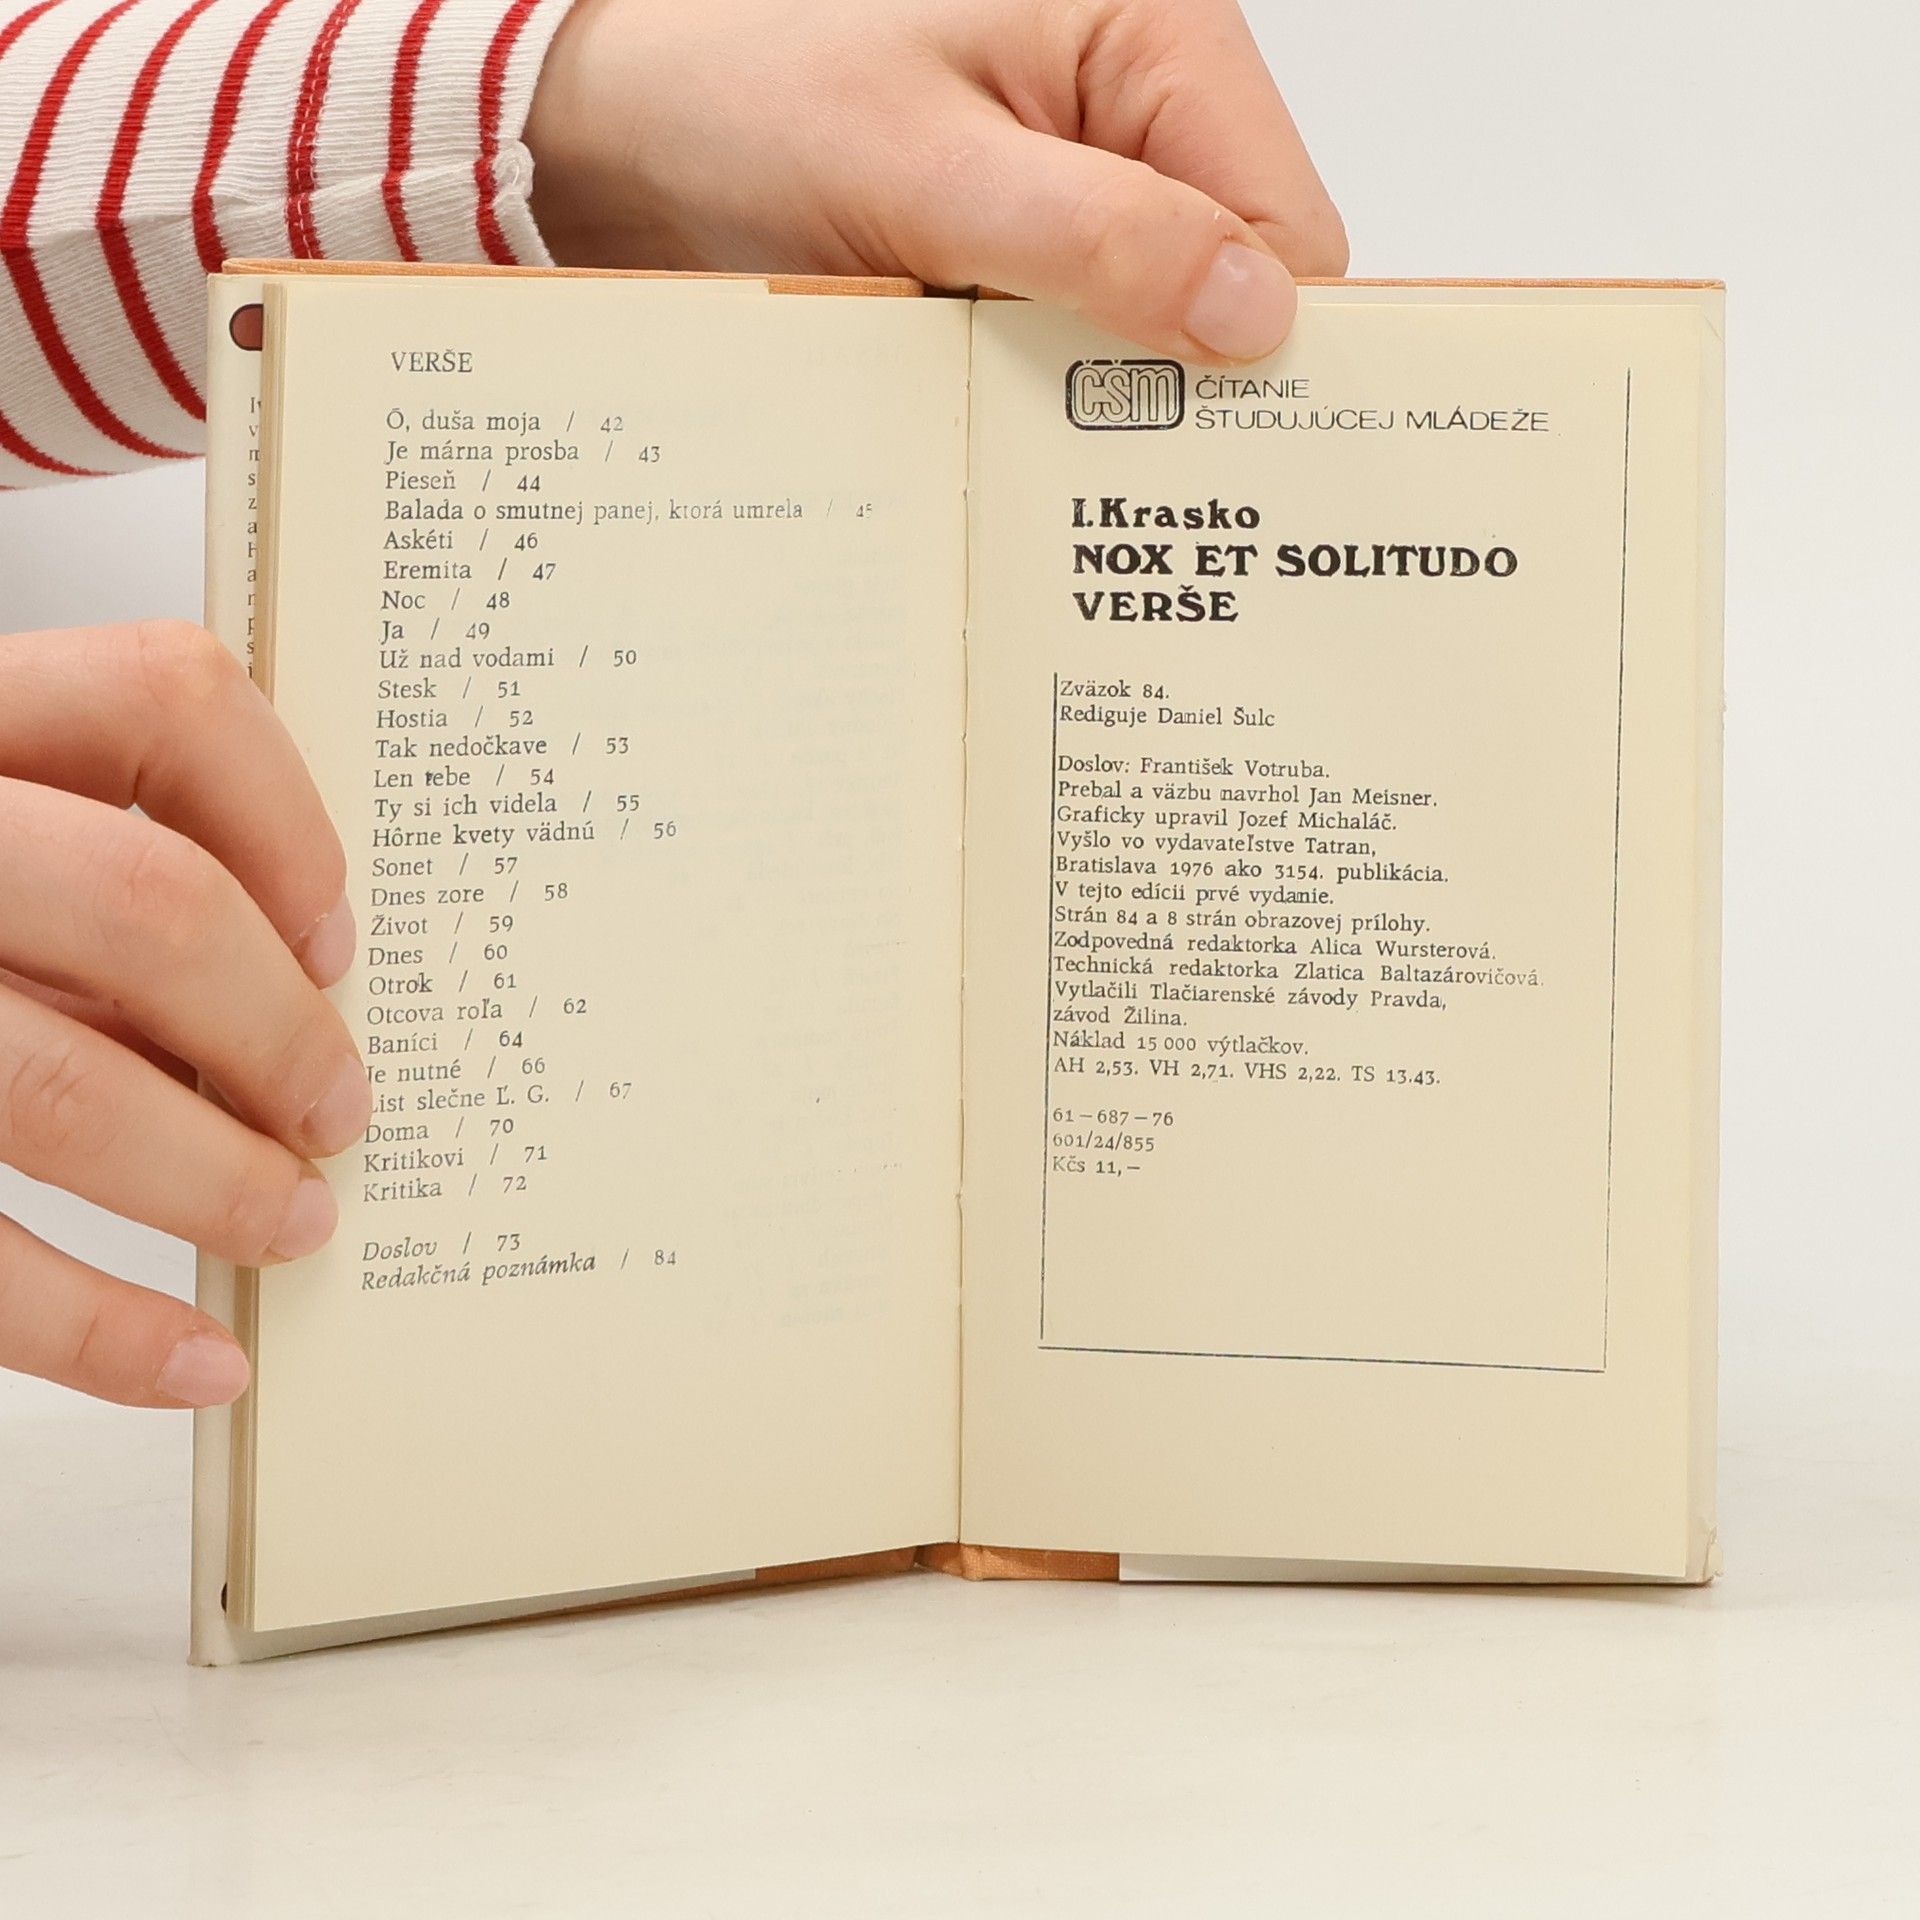 VERŠE
Ó, duša moja / 42
Je márna prosba / 43
Pieseň / 44
Balada o smutnej panej, ktorá umrela / 45
Askéti / 46
Eremita / 47
Noc / 48
Ja / 49
Už nad vodami / 50
Stesk / 51
Hostia / 52
Tak nedočkave / 53
Len tebe / 54
Ty si ich videla / 55
Hôrne kvety vädnú / 56
Sonet / 57
Dnes zore / 58
Život / 59
Dnes / 60
Otrok / 61
Otcova roľa / 62
Baníci / 64
Je nutné / 66
List slečne Ľ. G. / 67
Doma / 70
Kritikovi / 71
Kritika / 72
Doslov / 73
Redakčná poznámka / 84
ČSM ČÍTANIE
ŠTUDUJÚCEJ MLÁDEŽE
I. Krasko
NOX ET SOLITUDO
VERŠE
Zväzok 84.
Rediguje Daniel Šulc
Doslov: František Votruba.
Prebal a väzbu navrhol Jan Meisner.
Graficky upravil Jozef Michaláč.
Vyšlo vo vydavateľstve Tatran,
Bratislava 1976 ako 3154. publikácia.
V tejto edícii prvé vydanie.
Strán 84 a 8 strán obrazovej prílohy.
Zodpovedná redaktorka Alica Wursterová.
Technická redaktorka Zlatica Baltazárovičová.
Vytlačili Tlačiarenské závody Pravda,
závod Žilina.
Náklad 15 000 výtlačkov.
AH 2,53. VH 2,71. VHS 2,22. TS 13.43.
61 – 687 – 76
601/24/855
Kčs 11,–